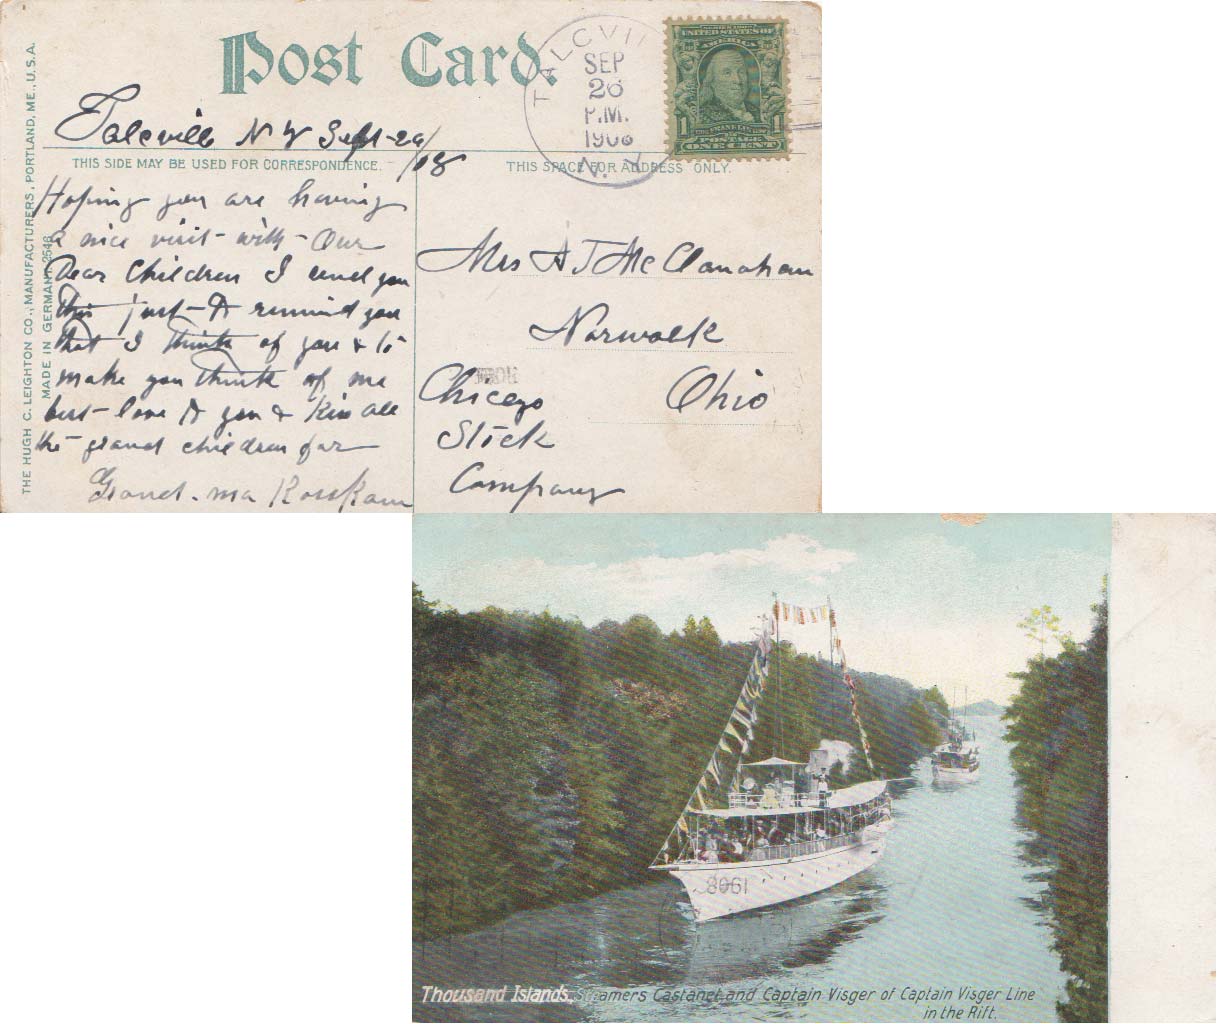 Post Card.
TALCVI
SEP
26
P.M.
1908
N.Y.
SERIES 1902
UNITED STATES OF
AMERICA
1 1
FRANKLIN
POSTAGE
ONE CENT
Talcville N Y Sept-26/08
THIS SIDE MAY BE USED FOR CORRESPONDENCE.
THIS SPACE FOR ADDRESS ONLY.
THE HUGH C. LEIGHTON CO., MANUFACTURERS, PORTLAND, ME., U.S.A.
MADE IN GERMANY 2548
Hoping you are having
a nice visit with Our
Dear Children I send you
this just to remind you
that I think of you & to
make you think of me
best love to you & Kiss all
the grand children for
Grand-ma
Mrs A J McClanahan
Norwalk
Ohio
Chicago
Stock
Company
1908
Thousand Islands, Steamers Castanet and Captain Visger of Captain Visger Line
in the Rift.